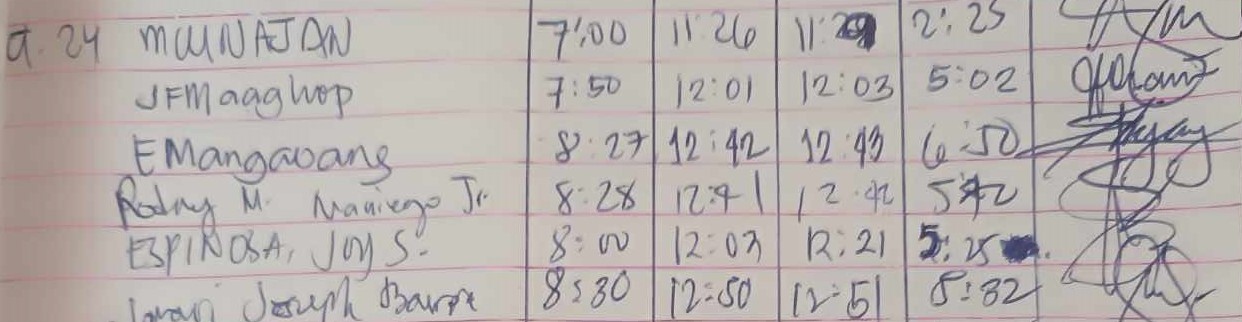 9. 24 MUNAJAN 7:00 11:26 11:29 2:25
JFMagghop 7:50 12:01 12:03 5:02
EMangaoang 8:27 12:42 12:43 6:50
Rodny M. Maniego Jr. 8:28 12:41 12:42 5:42
ESPINOSA, JOY S. 8:00 12:03 12:21 5:25
Joseph 8:30 12:50 12:51 8:32